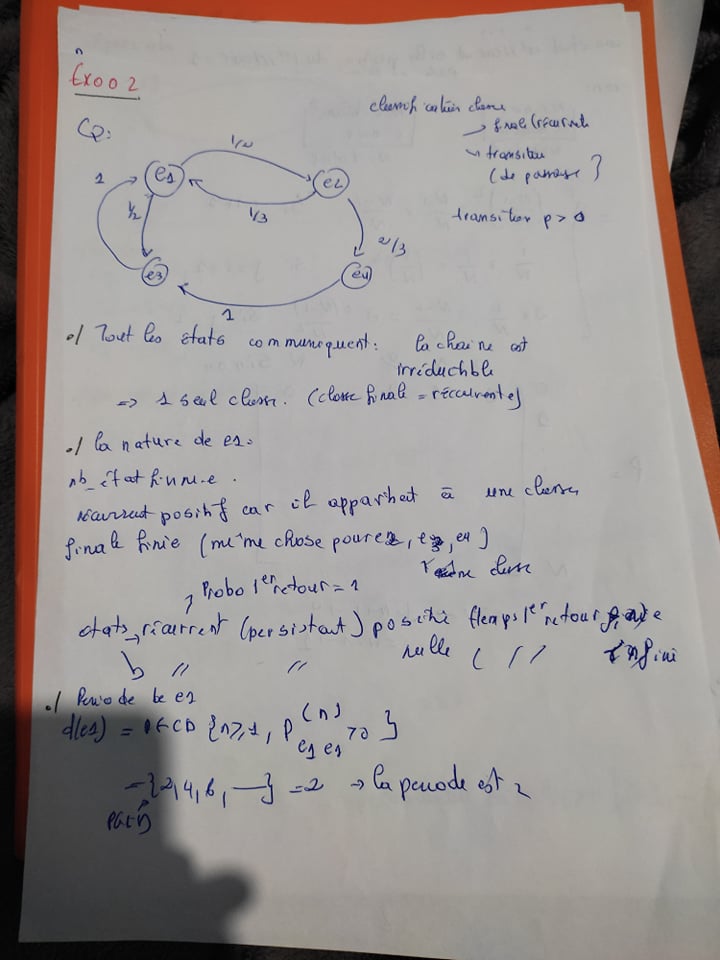 Exo 02
CQ:
classification classe
→ finale (récurrente
↘ transitoire
(de passage }
transitoire p > 0
e1
1/2
e2
1
1/2
1/3
2/3
e3
e4
1
•/ Tout les états communiquent: la chaine est
irréductible
=> 1 seul classe. (classe finale = récurrente)
•/ la nature de e1:
nb_état finie.
récurrent positif car il appartient à une classe
finale finie (même chose pour e2, e3, e4)
même classe
Proba 1er retour = 1
états récurrent (persistant) positif (temps 1er retour finie
↳ // // nulle ( // infini
•/ Periode de e1
d(e1) = PGCD {n ≥ 1, P(n) e1 e1 > 0 }
= {2, 4, 6, —} = 2 → la periode est 2
PGCD